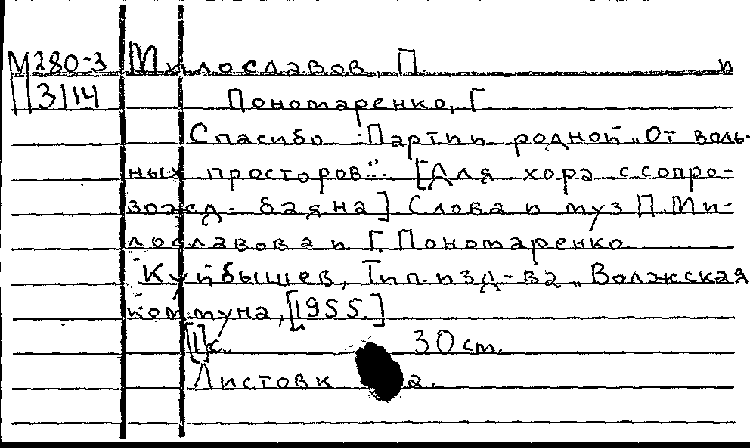 М280-3 Милославов, П. и
П3114 Пономаренко, Г.
Спасибо Партии родной „От воль-
ных просторов..." [Для хора с сопро-
вожд. баяна] Слова и муз П. Ми-
лославова и Г. Пономаренко
Куйбышев, Тип. изд-ва „Волжская
коммуна, [1955.]
[1] с. 30 см.
Листовка.